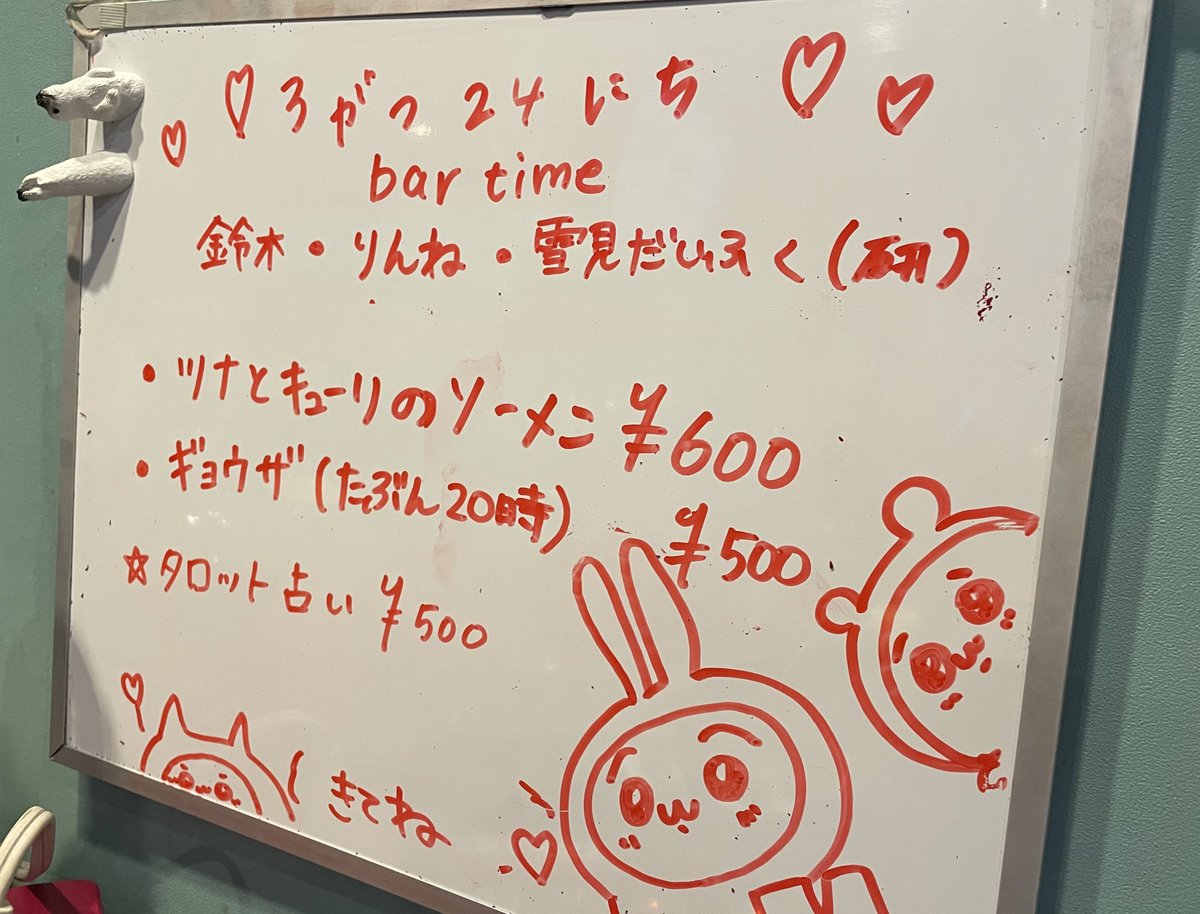 ♡3がつ24にち♡♡
bar time
鈴木・りんね・雪見だいふく(研)
・ツナとキューリのソーメン ¥600
・ギョウザ(たぶん20時) ¥500
☆タロット占い ¥500
きてね